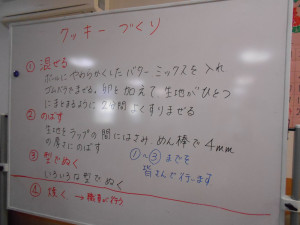 クッキー づくり
① 混ぜる
ボールにやわらかくした バター ミックスを入れ
ゴムベラでまぜる。卵を加えて生地がひとつ
にまとまるように2分間よくすりまぜる
② のばす
生地をラップの間にはさみ、めん棒で4mm
の厚さにのばす
③ 型でぬく
いろいろな型でぬく
①～③までを
皆さんで行います
④ 焼く → 職員が行う